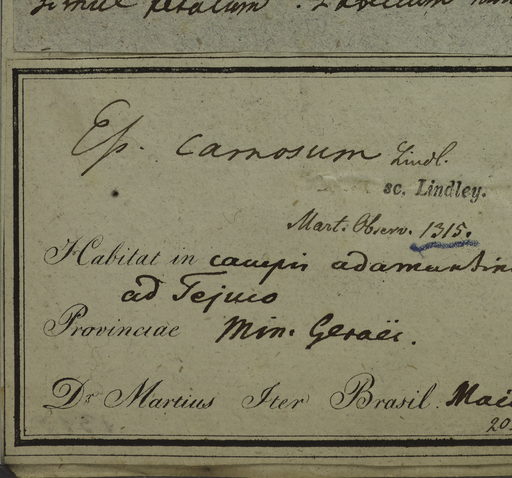 simul petalum. Labellum
Ep. carnosum Lindl.
sc. Lindley.
Mart. Observ. 1315.
Habitat in campis adamantin
ad Tejuco
Provinciae Min. Geraës.
Dr Martius Iter Brasil. Mai
20